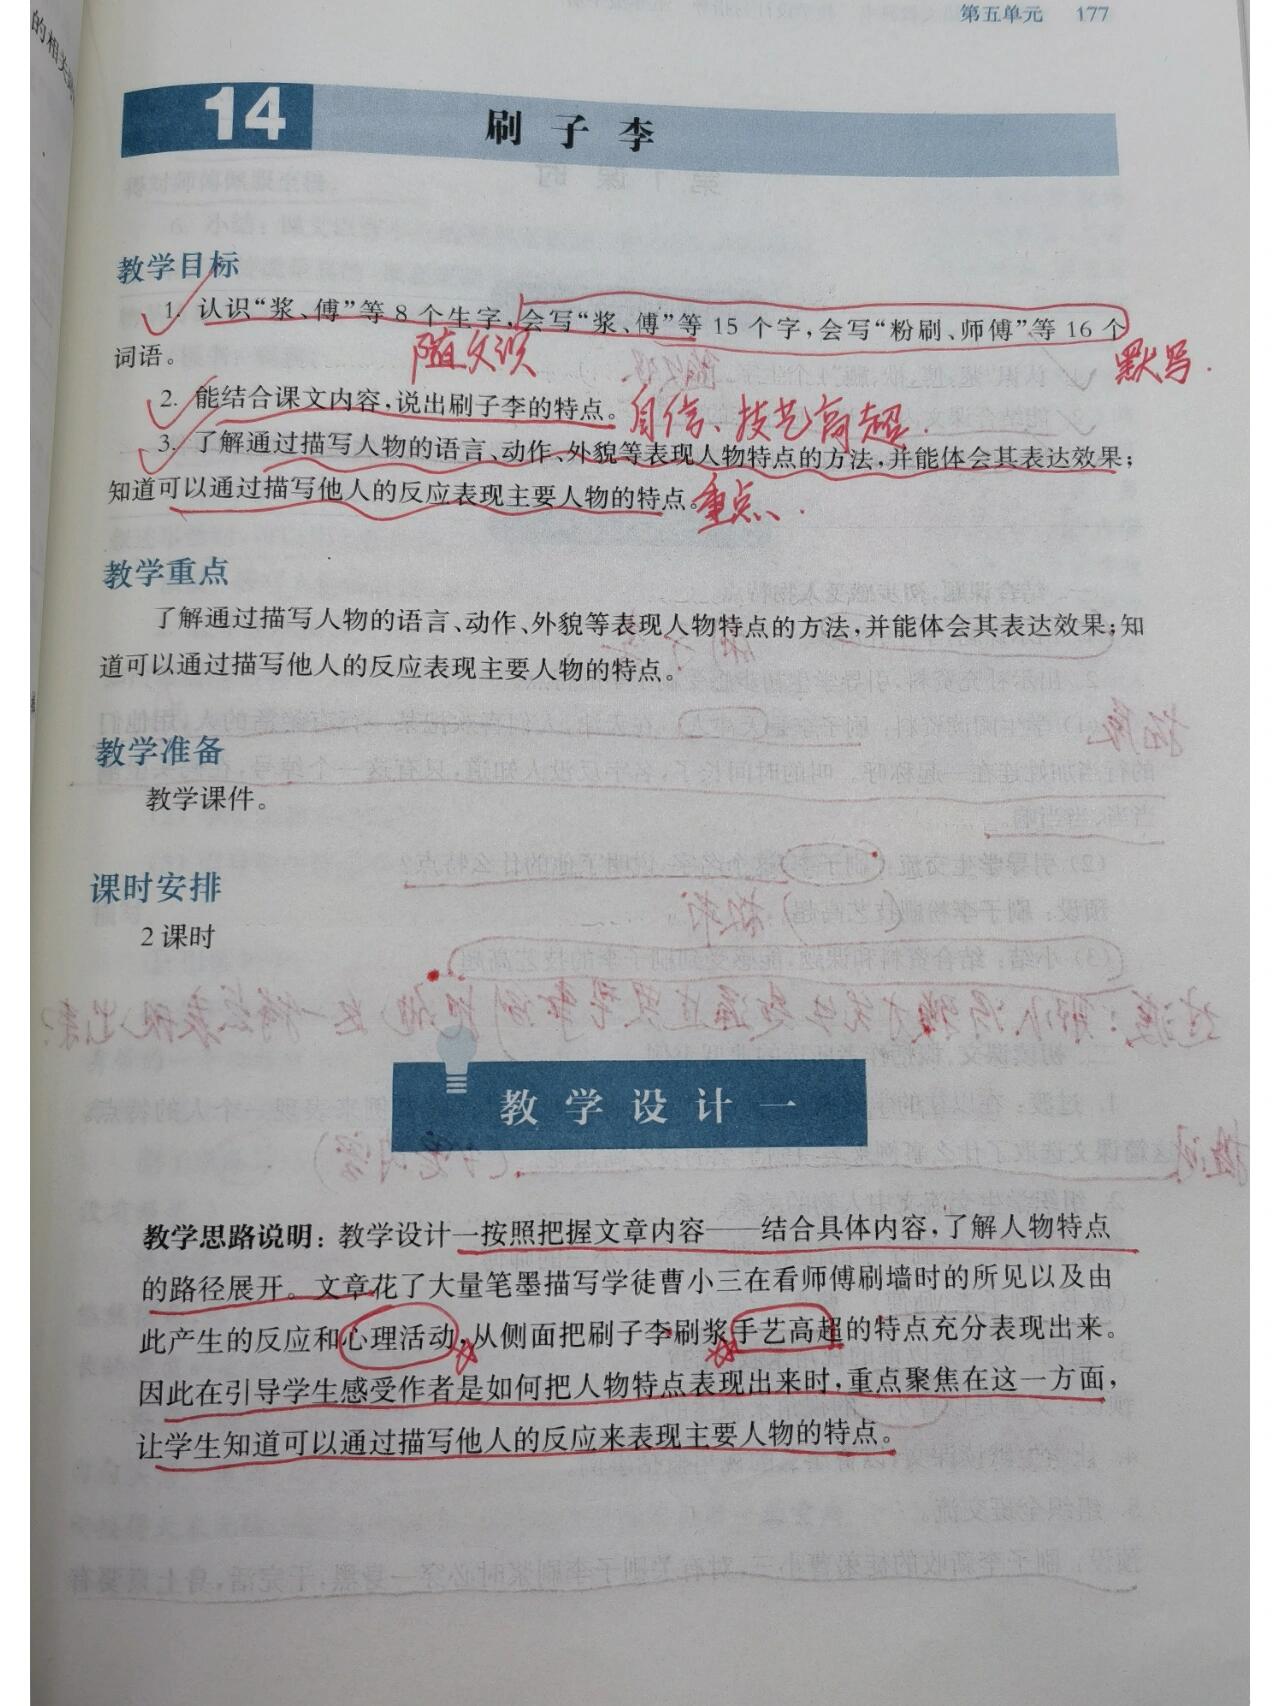 的相关
第五单元 177
14 刷子李
教学目标
1. 认识“浆、傅”等 8 个生字,会写“浆、傅”等 15 个字,会写“粉刷、师傅”等 16 个
词语。
随文识
默写.
2. 能结合课文内容,说出刷子李的特点。自信、技艺高超.
3. 了解通过描写人物的语言、动作、外貌等表现人物特点的方法,并能体会其表达效果;
知道可以通过描写他人的反应表现主要人物的特点。重点、.
教学重点
了解通过描写人物的语言、动作、外貌等表现人物特点的方法,并能体会其表达效果;知
道可以通过描写他人的反应表现主要人物的特点。
教学准备
教学课件。
课时安排
2 课时
教学设计一
教学思路说明: 教学设计一按照把握文章内容——结合具体内容,了解人物特点
的路径展开。文章花了大量笔墨描写学徒曹小三在看师傅刷墙时的所见以及由
此产生的反应和心理活动,从侧面把刷子李刷浆手艺高超的特点充分表现出来。
因此在引导学生感受作者是如何把人物特点表现出来时,重点聚焦在这一方面,
让学生知道可以通过描写他人的反应来表现主要人物的特点。